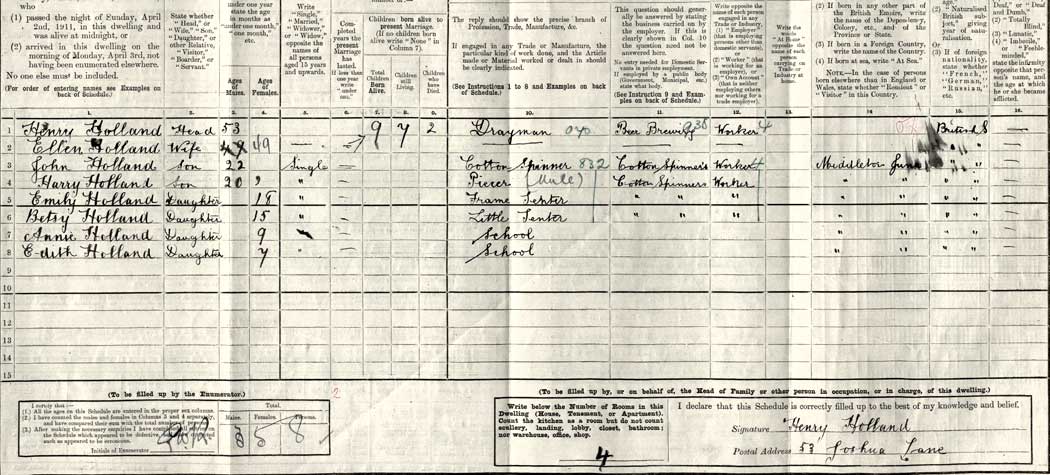 who
(1) passed the night of Sunday, April 2nd, 1911, in this dwelling and was alive at midnight, or
(2) arrived in this dwelling on the morning of Monday, April 3rd, not having been enumerated elsewhere.
No one else must be included.
(For order of entering names see Examples on back of Schedule.)
State whether "Head," or "Wife," "Son," "Daughter," or other Relative, "Visitor," "Boarder," or "Servant."
under one year state the age in months as "under one month," "one month," etc.
Ages of Males.
Ages of Females.
Write "Single," "Married," "Widower," or "Widow," opposite the names of all persons aged 15 years and upwards.
Completed years the present Marriage has lasted. If less than one year write "under one."
Children born alive to present Marriage. (If no children born alive write "None" in Column 7).
Total Children Born Alive.
Children still Living.
Children who have Died.
The reply should show the precise branch of Profession, Trade, Manufacture, &c.
If engaged in any Trade or Manufacture, the particular kind of work done, and the Article made or Material worked or dealt in should be clearly indicated.
(See Instructions 1 to 8 and Examples on back of Schedule.)
This question should generally be answered by stating the business carried on by the employer. If this is clearly shown in Col. 10 the question need not be answered here.
No entry needed for Domestic Servants in private employment. If employed by a public body (Government, Municipal, etc.) state what body.
(See Instruction 9 and Examples on back of Schedule.)
Write opposite the name of each person engaged in any Trade or Industry, (1) "Employer" (that is employing persons other than domestic servants), or (2) "Worker" (that is working for an employer), or (3) "Own Account" (that is neither employing others nor working for a trade employer).
Write the words "At Home" opposite the name of each person carrying on Trade or Industry at home.
(2) If born in any other part of the British Empire, write the name of the Dependency, Colony, etc., and of the Province or State.
(3) If born in a Foreign Country, write the name of the Country.
(4) If born at sea, write "At Sea."
NOTE.—In the case of persons born elsewhere than in England or Wales, state whether "Resident" or "Visitor" in this Country.
(2) "Naturalised British subject," giving year of naturalisation. Or (3) If of foreign nationality, state whether "French," "German," "Russian," etc.
Deaf," or "Deaf and Dumb," (2) "Totally Blind," (3) "Lunatic," (4) "Imbecile," or "Feeble-minded," state the infirmity opposite that person's name, and the age at which he or she became afflicted.
1. 2. 3. 4. 5. 6. 7. 8. 9. 10. 11. 12. 13. 14. 15. 16.
1 Henry Holland Head 53 — 9 7 2 Drayman Beer Brewing 938 Worker 4 British S —
2 Ellen Holland Wife 49 — —
3 John Holland Son 22 Single — Cotton Spinner 832 Cotton Spinners Worker 4 Middleton " —
4 Harry Holland Son 20 " — Piecer (Mule) Cotton Spinners Worker " " —
5 Emily Holland Daughter 18 " — Frame Tenter " " " " " —
6 Betsy Holland Daughter 15 " — Little Tenter " " " " " —
7 Annie Holland Daughter 9 — School " " —
8 Edith Holland Daughter 7 — School " " —
9
10
11
12
13
14
15
(To be filled up by the Enumerator.)
I certify that:—
(1.) All the ages on this Schedule are entered in the proper sex columns.
(2.) I have counted the males and females in Columns 3 and 4 separately, and have compared their sum with the total number of persons.
(3.) After making the necessary enquiries I have completed all entries on the Schedule which appeared to be defective, and have corrected such as appeared to be erroneous.
Initials of Enumerator
Total.
Males. Females. Persons.
3 5 8
(To be filled up by, or on behalf of, the Head of Family or other person in occupation, or in charge, of this dwelling.)
Write below the Number of Rooms in this Dwelling (House, Tenement, or Apartment). Count the kitchen as a room but do not count scullery, landing, lobby, closet, bathroom; nor warehouse, office, shop.
4
I declare that this Schedule is correctly filled up to the best of my knowledge and belief.
Signature Henry Holland
Postal Address 53 Joshua Lane